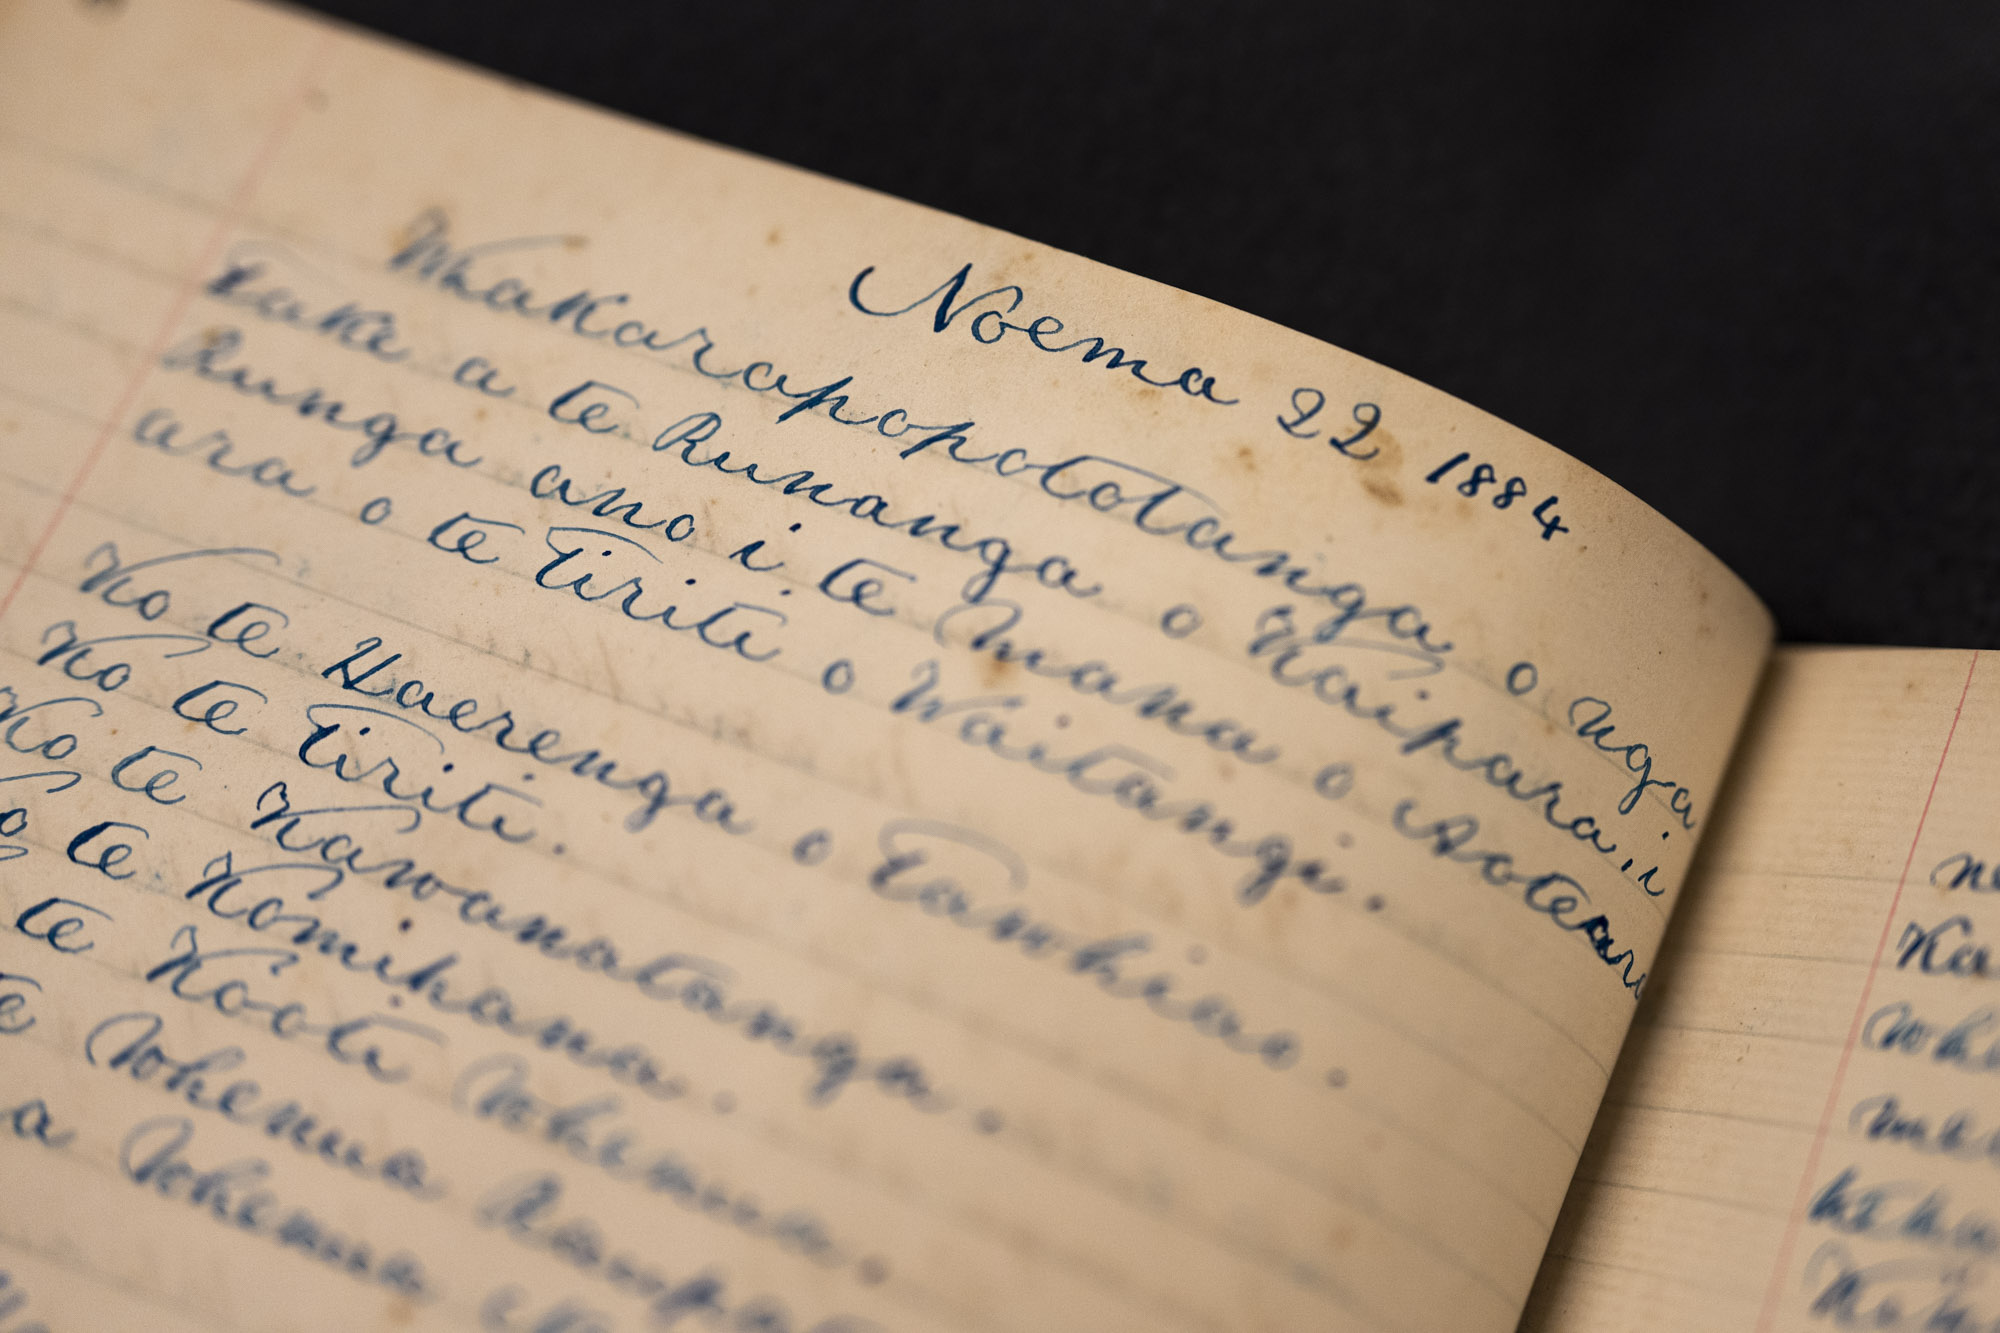 Noema 22 1884
Whakarapopototanga o nga
take a te Runanga o Kaipara. i
Runga ano i te mana o Aotear
ara o te Tiriti o Waitangi.
Ko te Haerenga o Tawhiao.
Ko te Tiriti.
Ko te Kawanatanga.
Ko te Komihana.
te Kooti Whenua.
te Whenua Raup
a Whenua